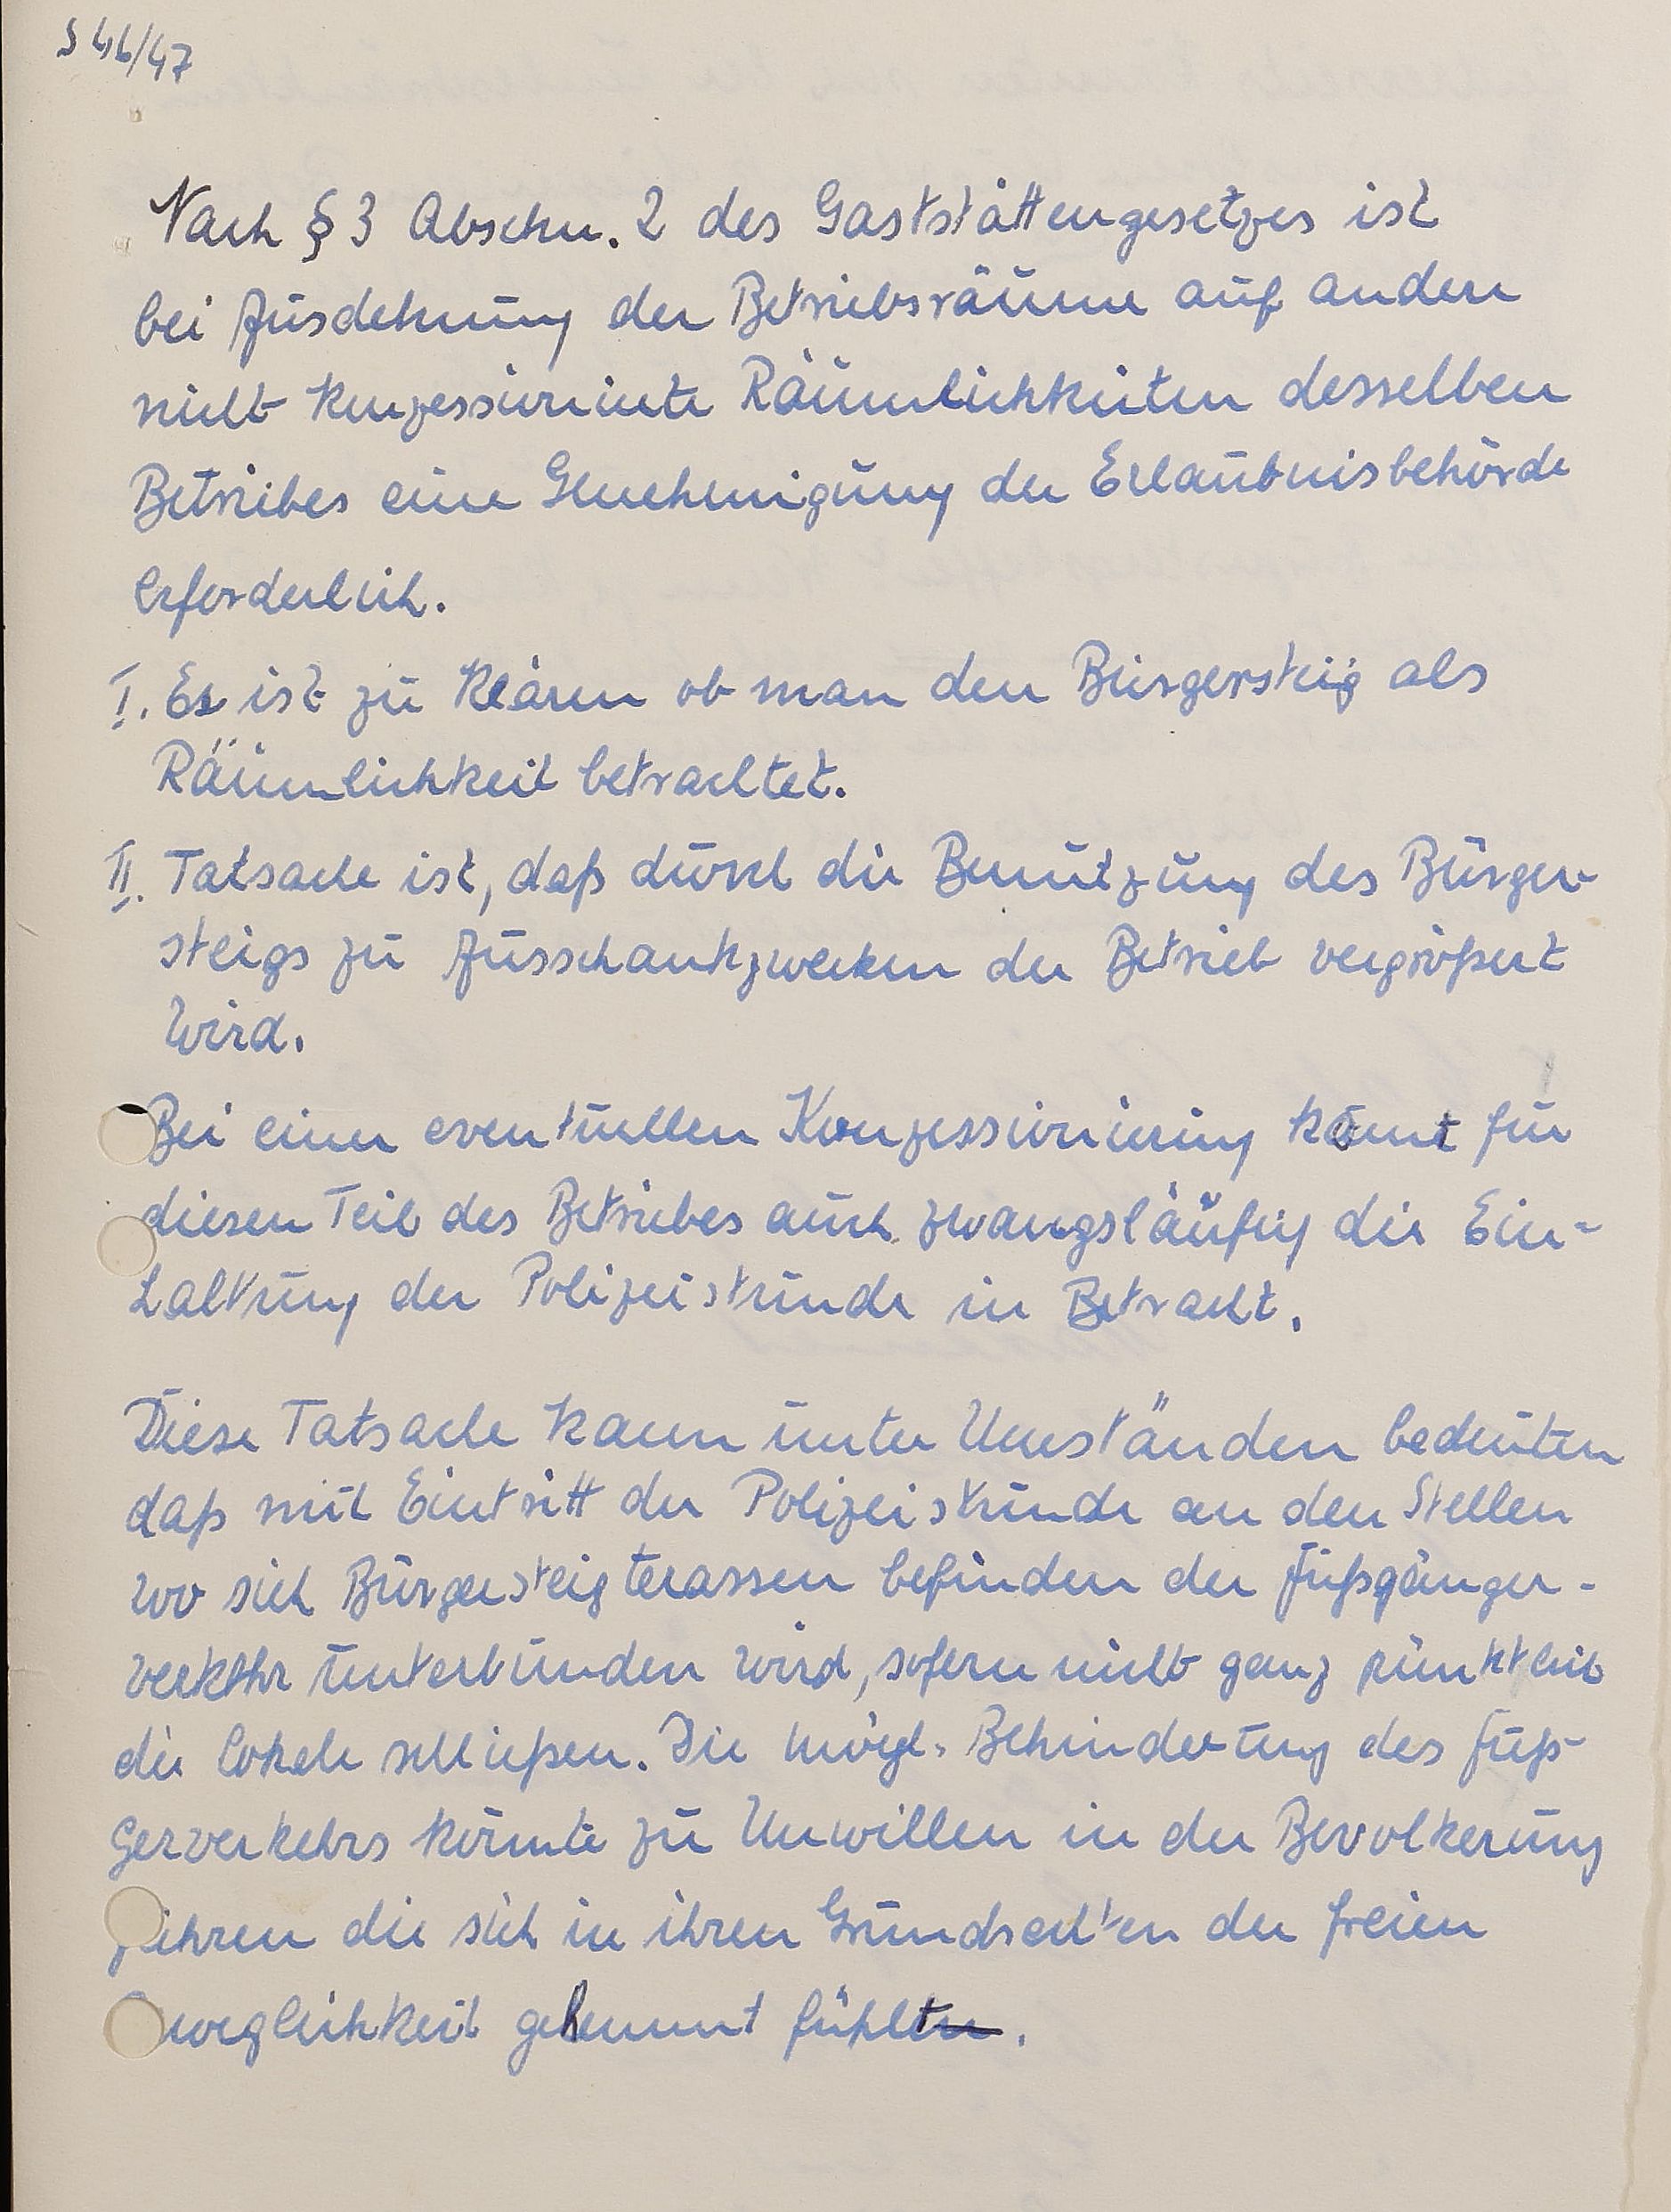 S 46/47
Nach § 3 Abschn. 2 des Gaststättengesetzes ist
bei Ausdehnung der Betriebsräume auf andere
nicht konzessionierte Räumlichkeiten desselben
Betriebes eine Genehmigung der Erlaubnisbehörde
erforderlich.
I. Es ist zu klären ob man den Bürgersteig als
Räumlichkeit betrachtet.
II. Tatsache ist, daß durch die Benützung des Bürger-
steigs zu Ausschankzwecken der Betrieb vergrößert
wird.
Bei einer eventuellen Konzessionierung kommt für
diesen Teil des Betriebes auch zwangsläufig die Ein-
haltung der Polizeistunde in Betracht.
Diese Tatsache kann unter Umständen bedeuten
daß mit Eintritt der Polizeistunde an den Stellen
wo sich Bürgersteigterassen befinden der Fußgänger-
verkehr unterbunden wird, sofern nicht ganz pünktlich
die Lokale schließen. Die mögl. Behinderung des Fuß-
gerverkehrs könnte zu Unwillen in der Bevölkerung
führen die sich in ihren Grundrechten der freien
weglichkeit gehemmt fühlt.